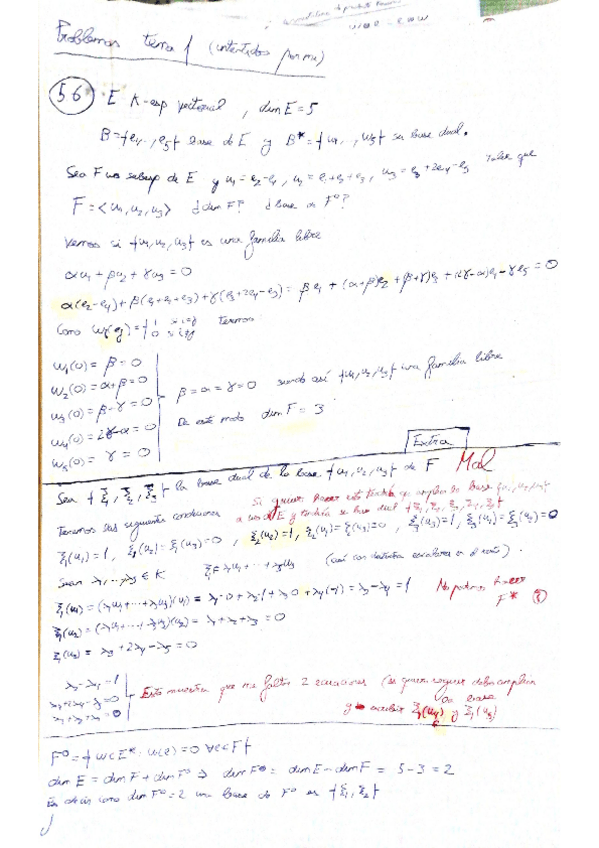 Problemas tema 1 (intentados por mi)
5.6 E K-esp vectorial, dim E = 5
B={e₁,..,e₅} base de E y B*={w₁,..,w₅} su base dual.
Sea F un subesp de E y u₁=e₂-e₄, u₂=e₁+e₂+e₃, u₃=e₃+2e₄-e₅ tales que
F=<u₁,u₂,u₃> ¿dim F? ¿base de F⁰?
Veamos si {u₁,u₂,u₃} es una familia libre
αu₁+βu₂+γu₃=0
α(e₂-e₄)+β(e₁+e₂+e₃)+γ(e₃+2e₄-e₅)= βe₁+(α+β)e₂+(β+γ)e₃+(2γ-α)e₄-γe₅=0
Como wᵢ(eⱼ)={1 si i=j 0 si i≠j tenemos
w₁(0)=β=0
w₂(0)=α+β=0
w₃(0)=β-γ=0
w₄(0)=2γ-α=0
w₅(0)=γ=0
β=α=γ=0 siendo así {u₁,u₂,u₃} una familia libre
De este modo dim F = 3
Extra
Sea {ξ₁,ξ₂,ξ₃} la base dual de la base {u₁,u₂,u₃} de F Mal
Si quieres hacer esto tendría que ampliar la base {u₁,u₂,u₃}
a una de E y tendría su base dual {ξ₁,ξ₂,ξ₃,ξ₄,ξ₅}
Tenemos las siguientes condiciones
ξ₁(u₁)=1, ξ₁(u₂)=ξ₁(u₃)=0, ξ₂(u₂)=1, ξ₂(u₁)=ξ₂(u₃)=0, ξ₃(u₃)=1, ξ₃(u₁)=ξ₃(u₂)=0
Sean λ₁,..,λ₅∈K
ξ₁(u₁)=(λ₁w₁+...+λ₅w₅)(u₁)=λ₁·0+λ₂·1+λ₃·0+λ₄(-1)=λ₂-λ₄=1
No podemos hacer
F*
ξ₁(u₂)=(λ₁w₁+...+λ₅w₅)(u₂)=λ₁+λ₂+λ₃=0
ξ₁(u₃)=λ₃+2λ₄-λ₅=0
λ₂-λ₄=1
λ₃+2λ₄-λ₅=0
λ₁+λ₂+λ₃=0
Esto muestra que me faltan 2 ecuaciones (si quiero seguir debo ampliar
la base
y ξ₁(u₄) y ξ₁(u₅)
F⁰={w∈E*: w(e)=0 ∀e∈F}
dim E = dim F + dim F⁰ ⇒ dim F⁰ = dim E - dim F = 5-3 = 2
como dim F⁰=2 una base de F⁰ es {ξ₁,ξ₂}